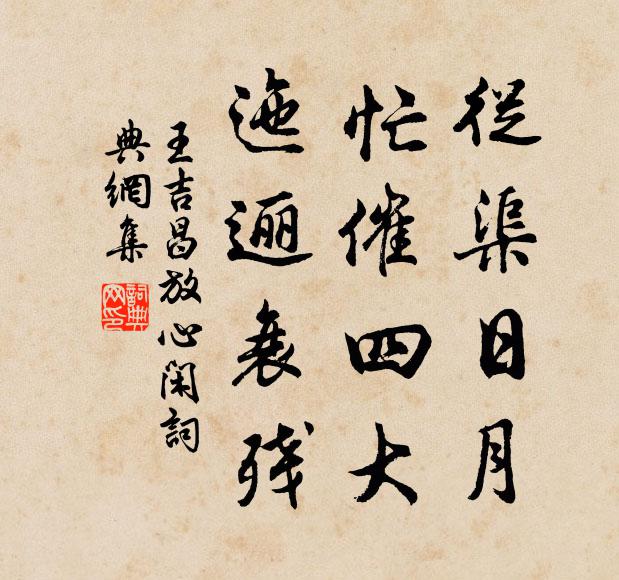 從渠日月
忙催四大
迤逦衰残
王吉昌放心閑詞
典網集
詞典网印